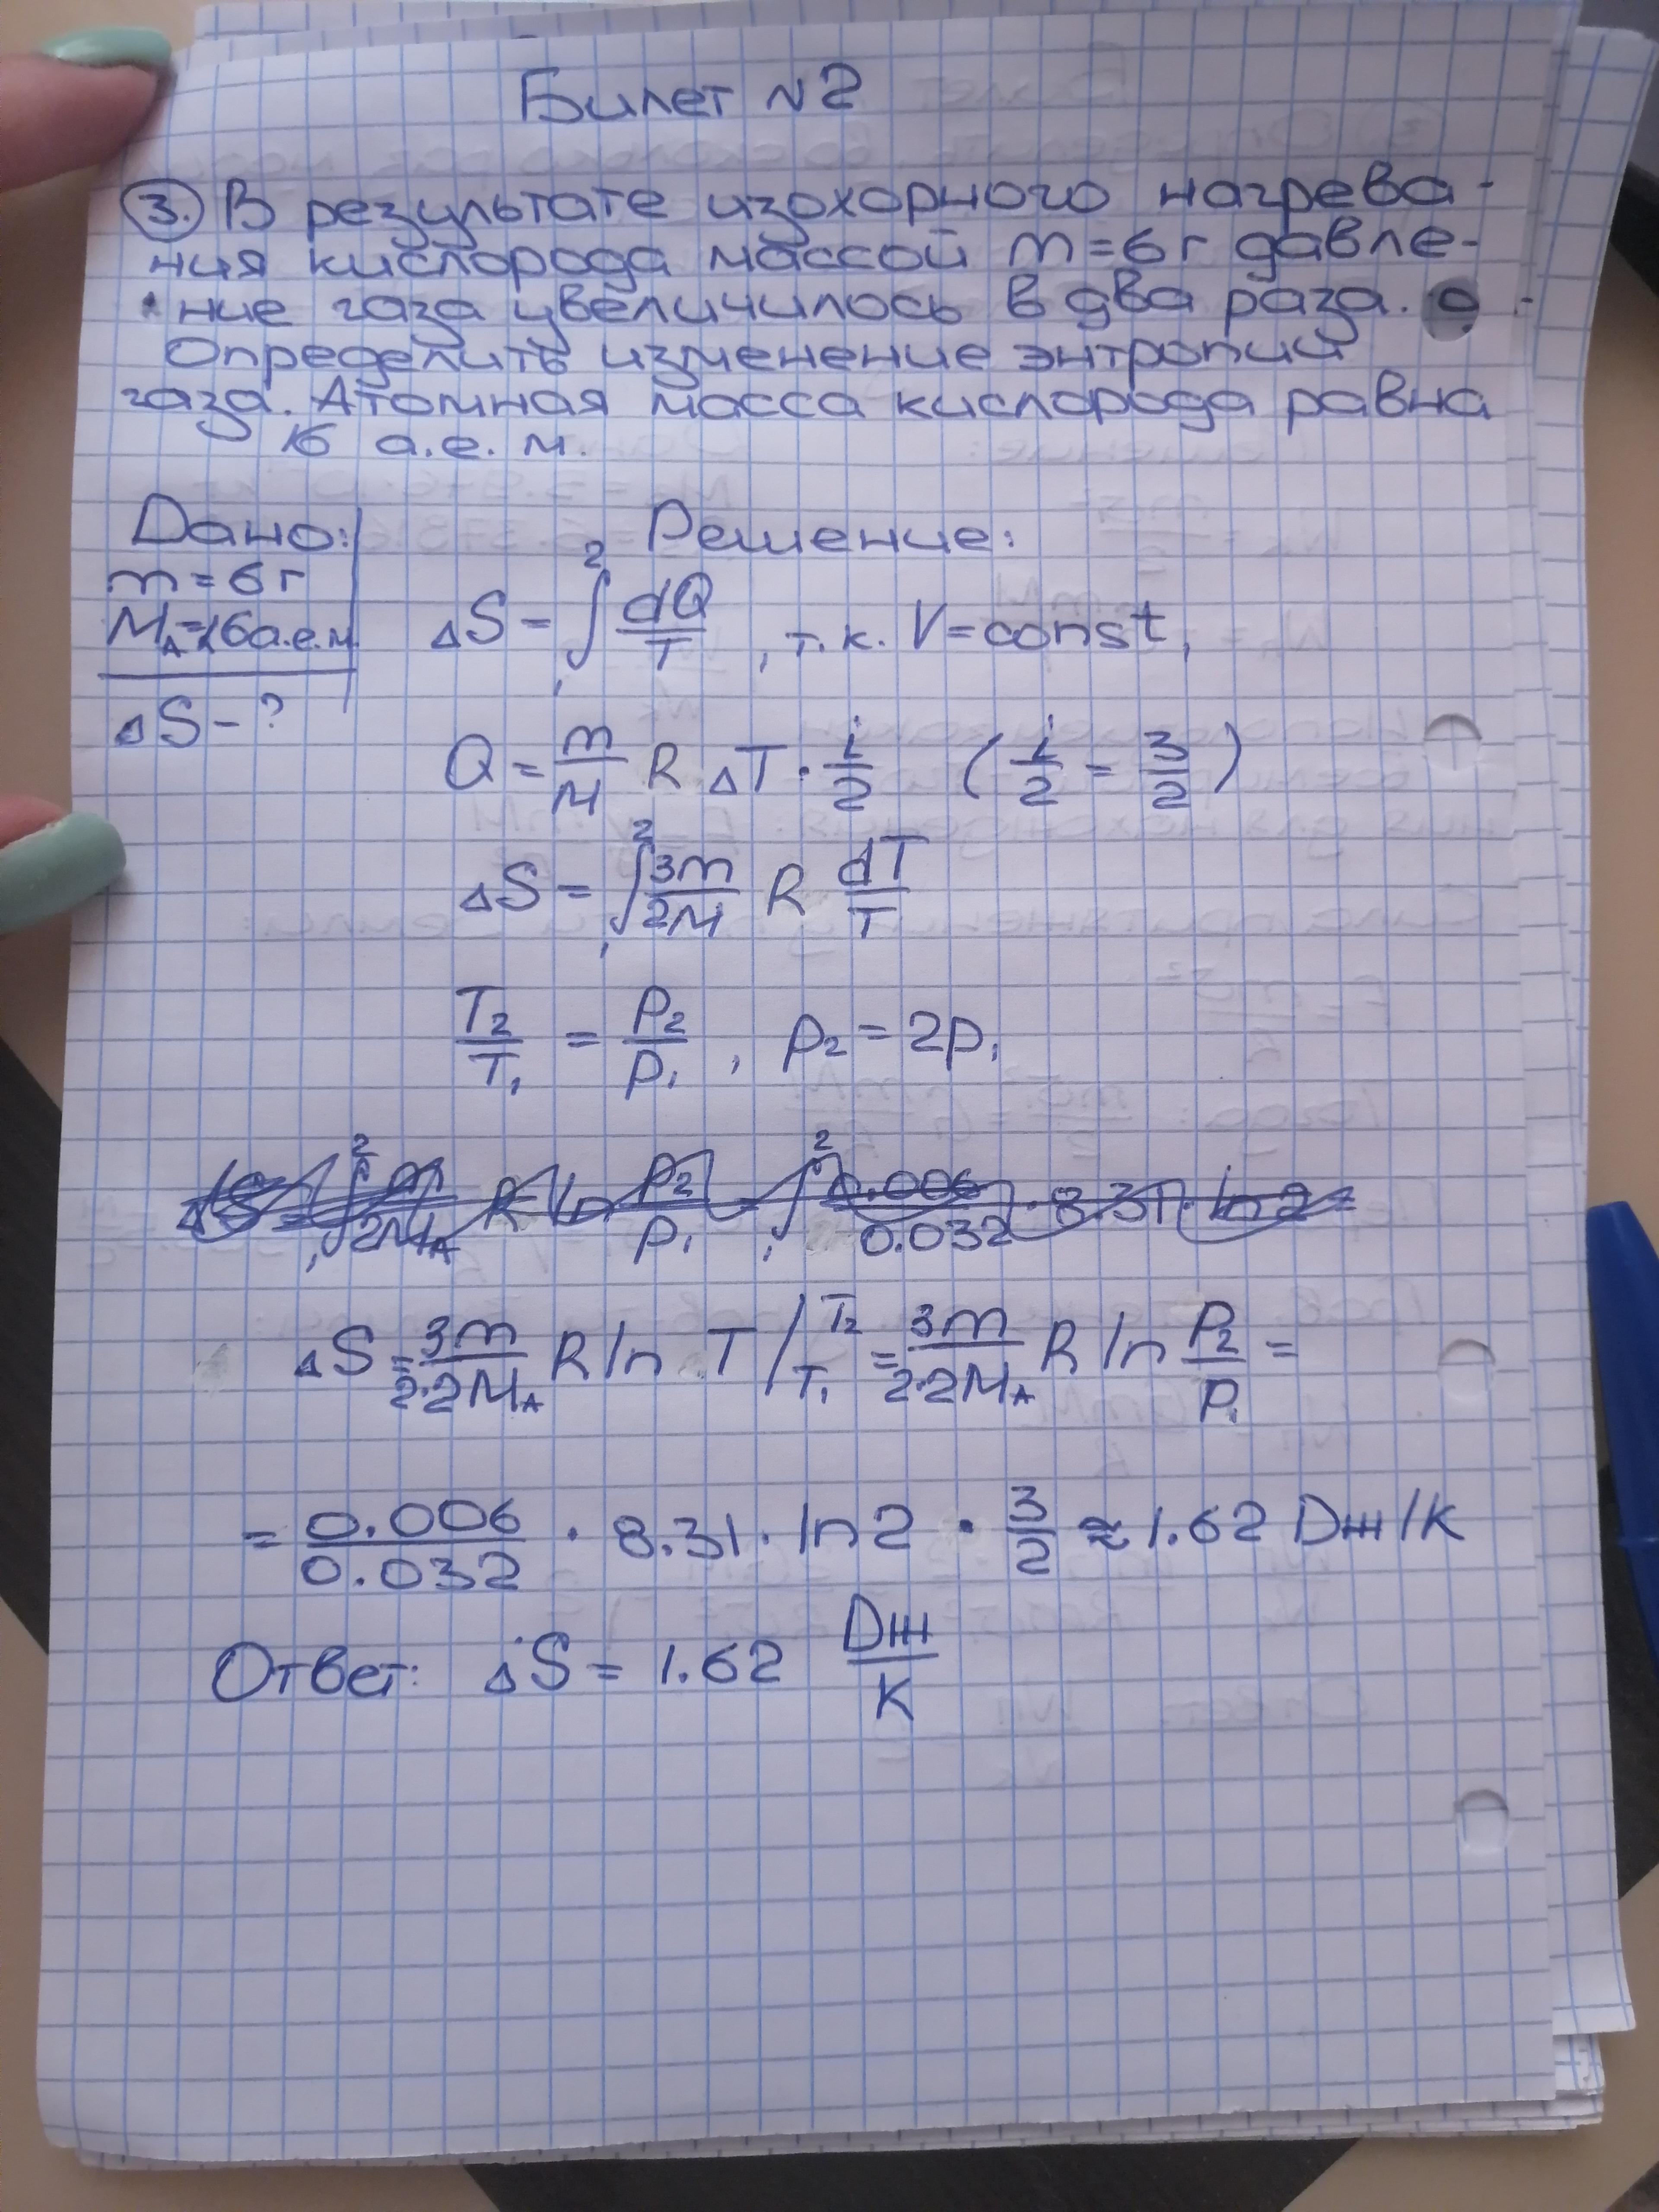 Билет №2
3. В результате изохорного нагрева-
ния кислорода массой m=6г давле-
ние газа увеличилось в два раза.
Определить изменение энтропии
газа. Атомная масса кислорода равна
16 а.е.м.
Дано:
m=6г
M_A=16а.е.м
ΔS-?
Решение:
ΔS = ∫₁² dQ/T, т.к. V=const,
Q = m/M R ΔT · i/2 (i/2 = 3/2)
ΔS = ∫₁² 3m/2M R dT/T
T₂/T₁ = P₂/P₁, P₂ = 2P₁
ΔS = ∫₁² m/2M_A R ln P₂/P₁ = ∫₁² 0.006/0.032 · 8.31 · ln2 =
ΔS = 3m/2·2M_A R ln T /T₁ T₂ = 3m/2·2M_A R ln P₂/P₁ =
= 0.006/0.032 · 8.31 · ln2 · 3/2 ≈ 1.62 Dж/K
Ответ: ΔS = 1.62 Dж/K